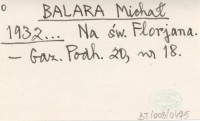 BALARA Michał
1932... Na św. Florjana.
– Gaz. Podh. 20, nr 18.
BJ/003/0495